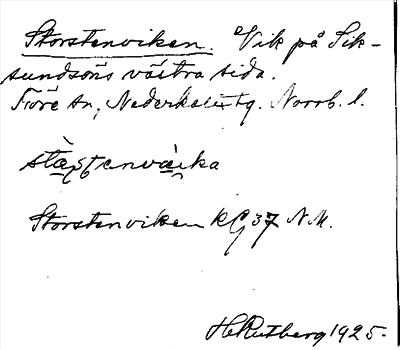 Storstenviken. Vik på Sik-
sundsöns västra sida.
Töre sn, Nederkalix tg. Norrb. l.
Storstenviken KG 37 N.M.
H Rutberg 1925.